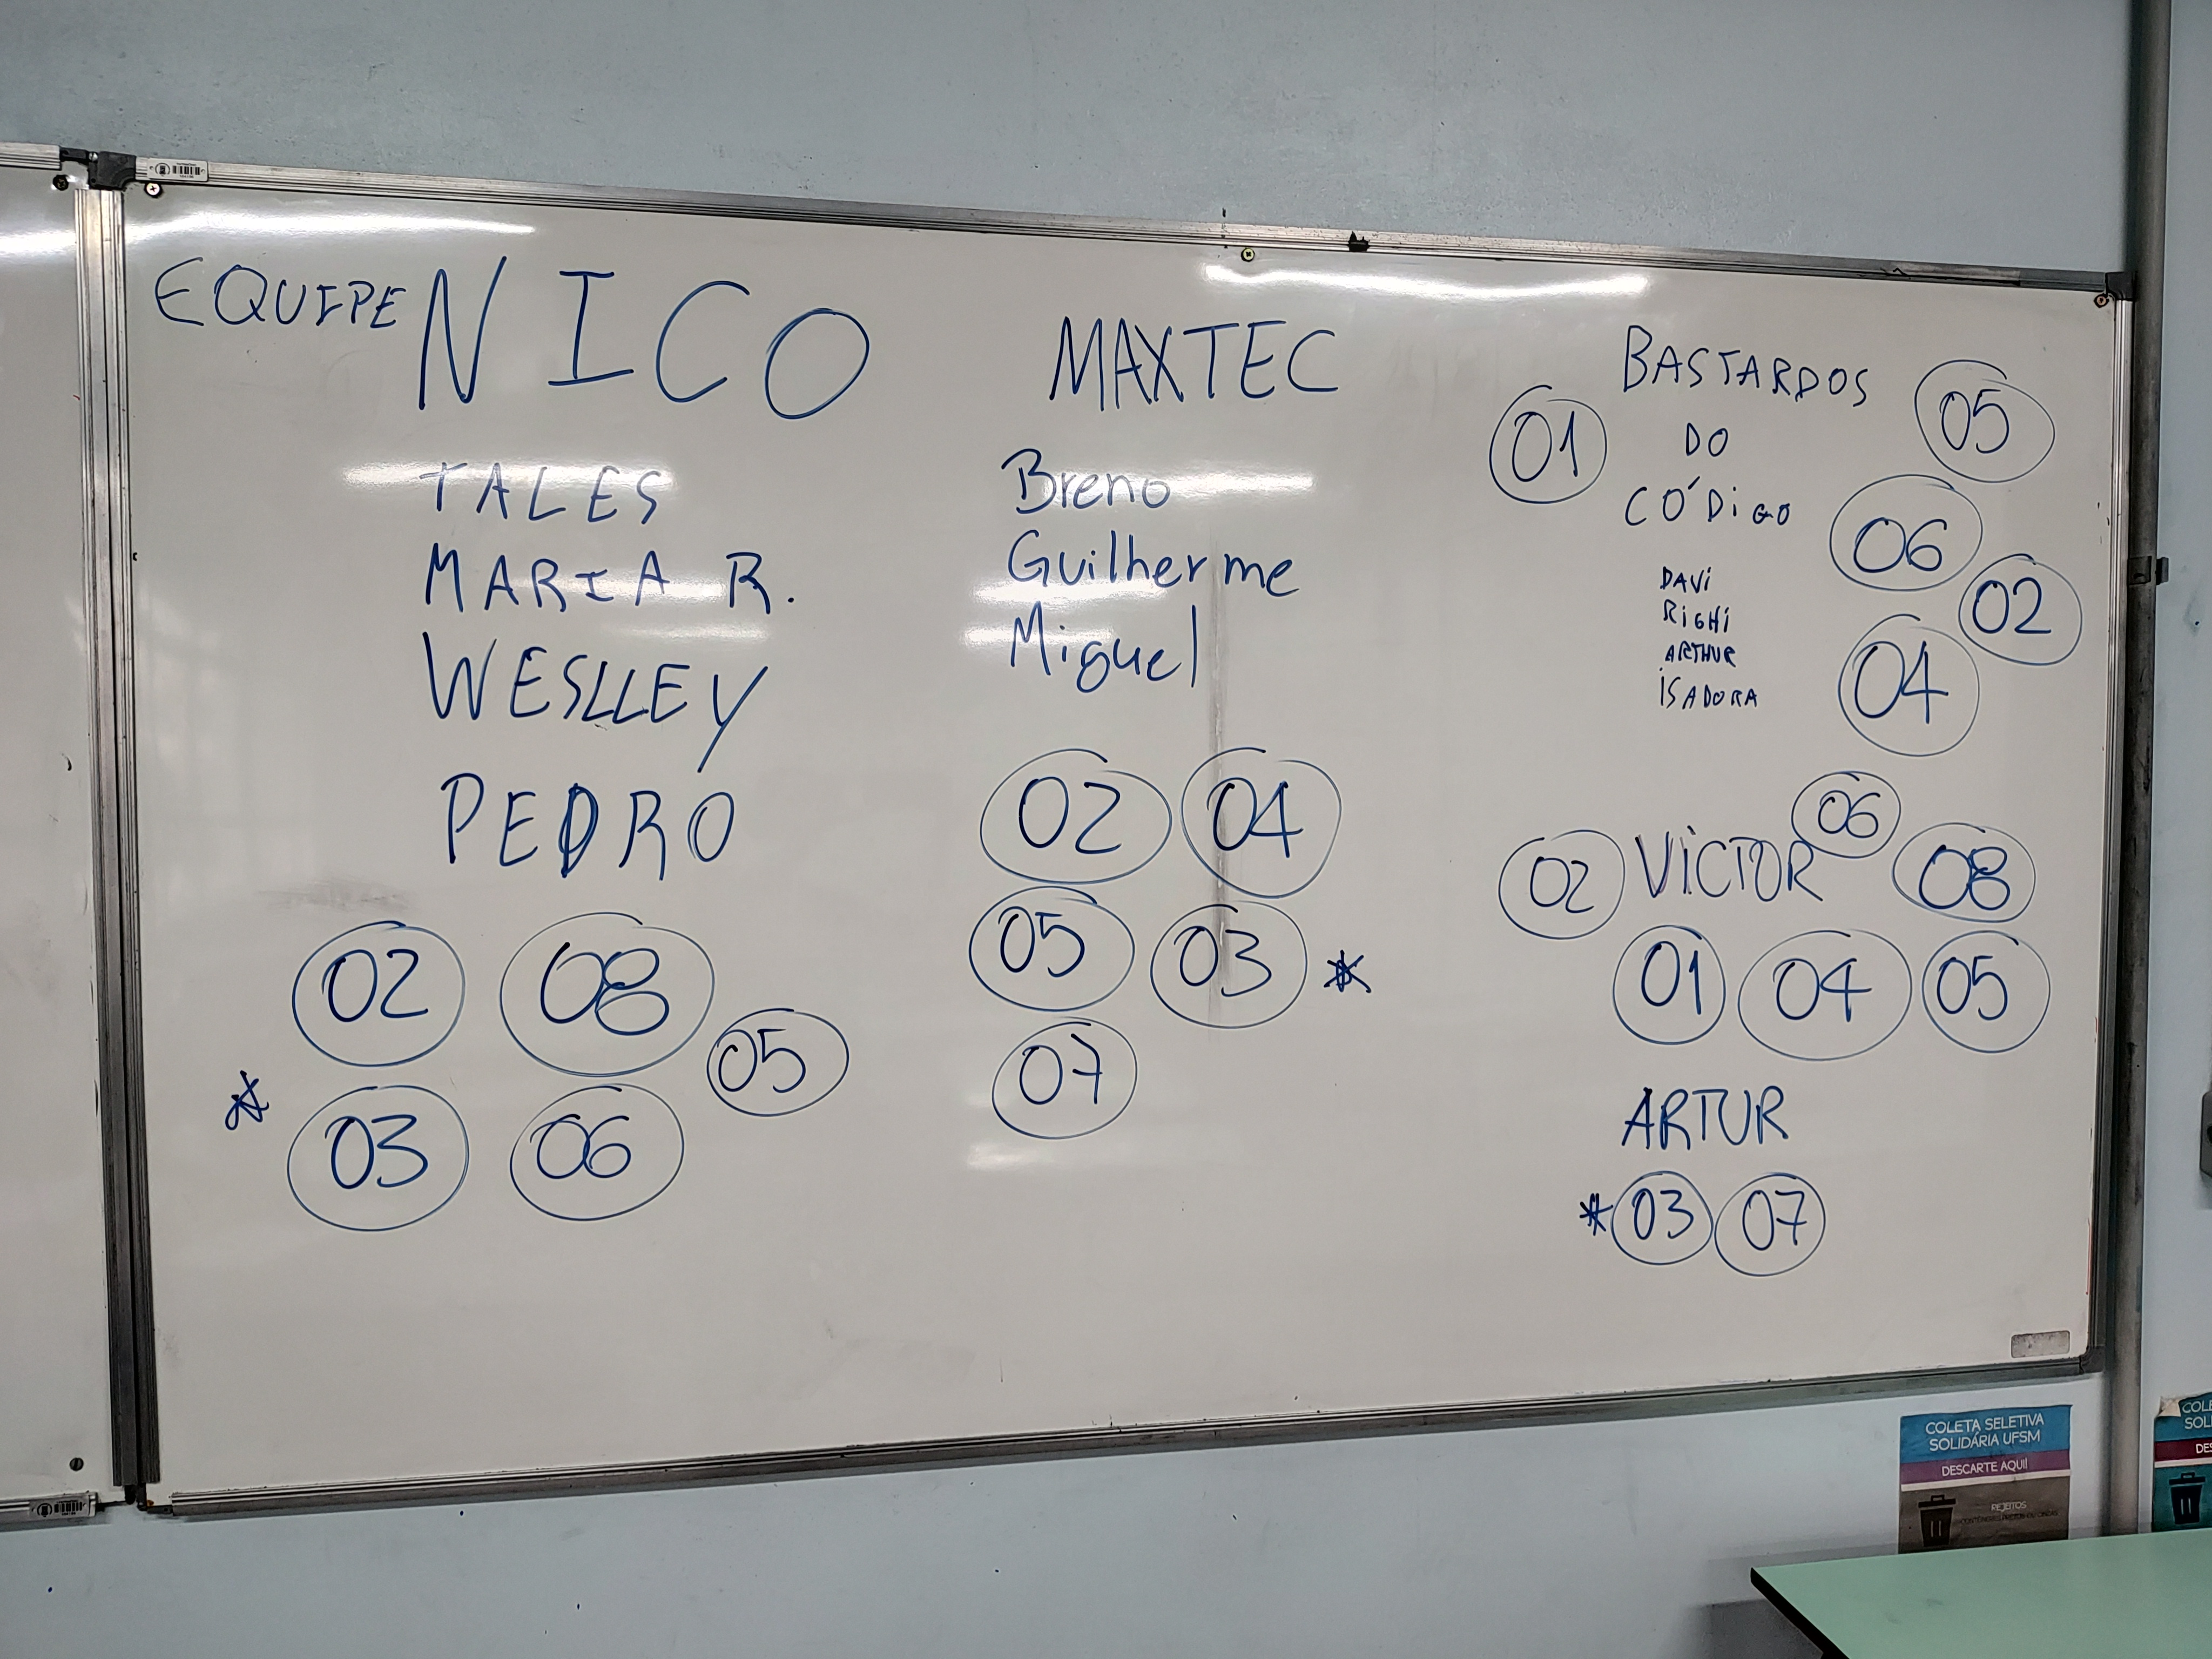 EQUIPE NICO
TALES
MARIA R.
WESLLEY
PEDRO
02 08
05
* 03 06
MAXTEC
Breno
Guilherme
Miguel
02 04
05 03 *
07
BASTARDOS
DO
CÓDIGO
01
05
06
02
04
DAVI
RIGHI
ARTHUR
ISADORA
02 VICTOR 06 08
01 04 05
ARTUR
* 03 07
COLETA SELETIVA
SOLIDÁRIA UFSM
DESCARTE AQUI!
REJEITOS